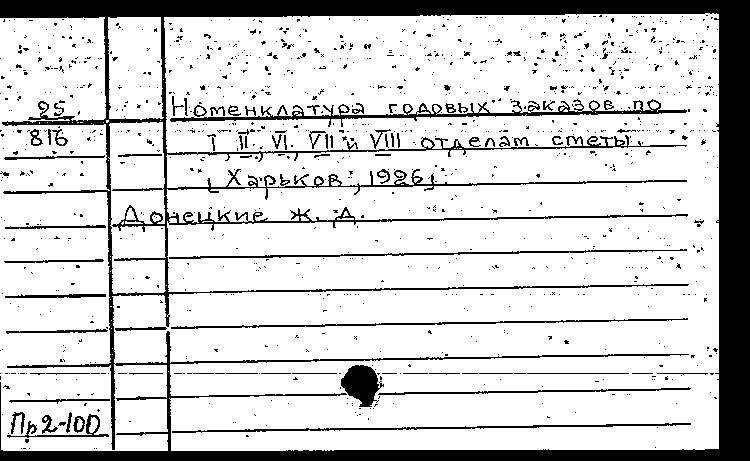 25 Номенклатура годовых заказов по
816 I, II, VI, VII и VIII отделам сметы.
[Харьков, 1926].
Донецкие ж. д.
Пр2-100